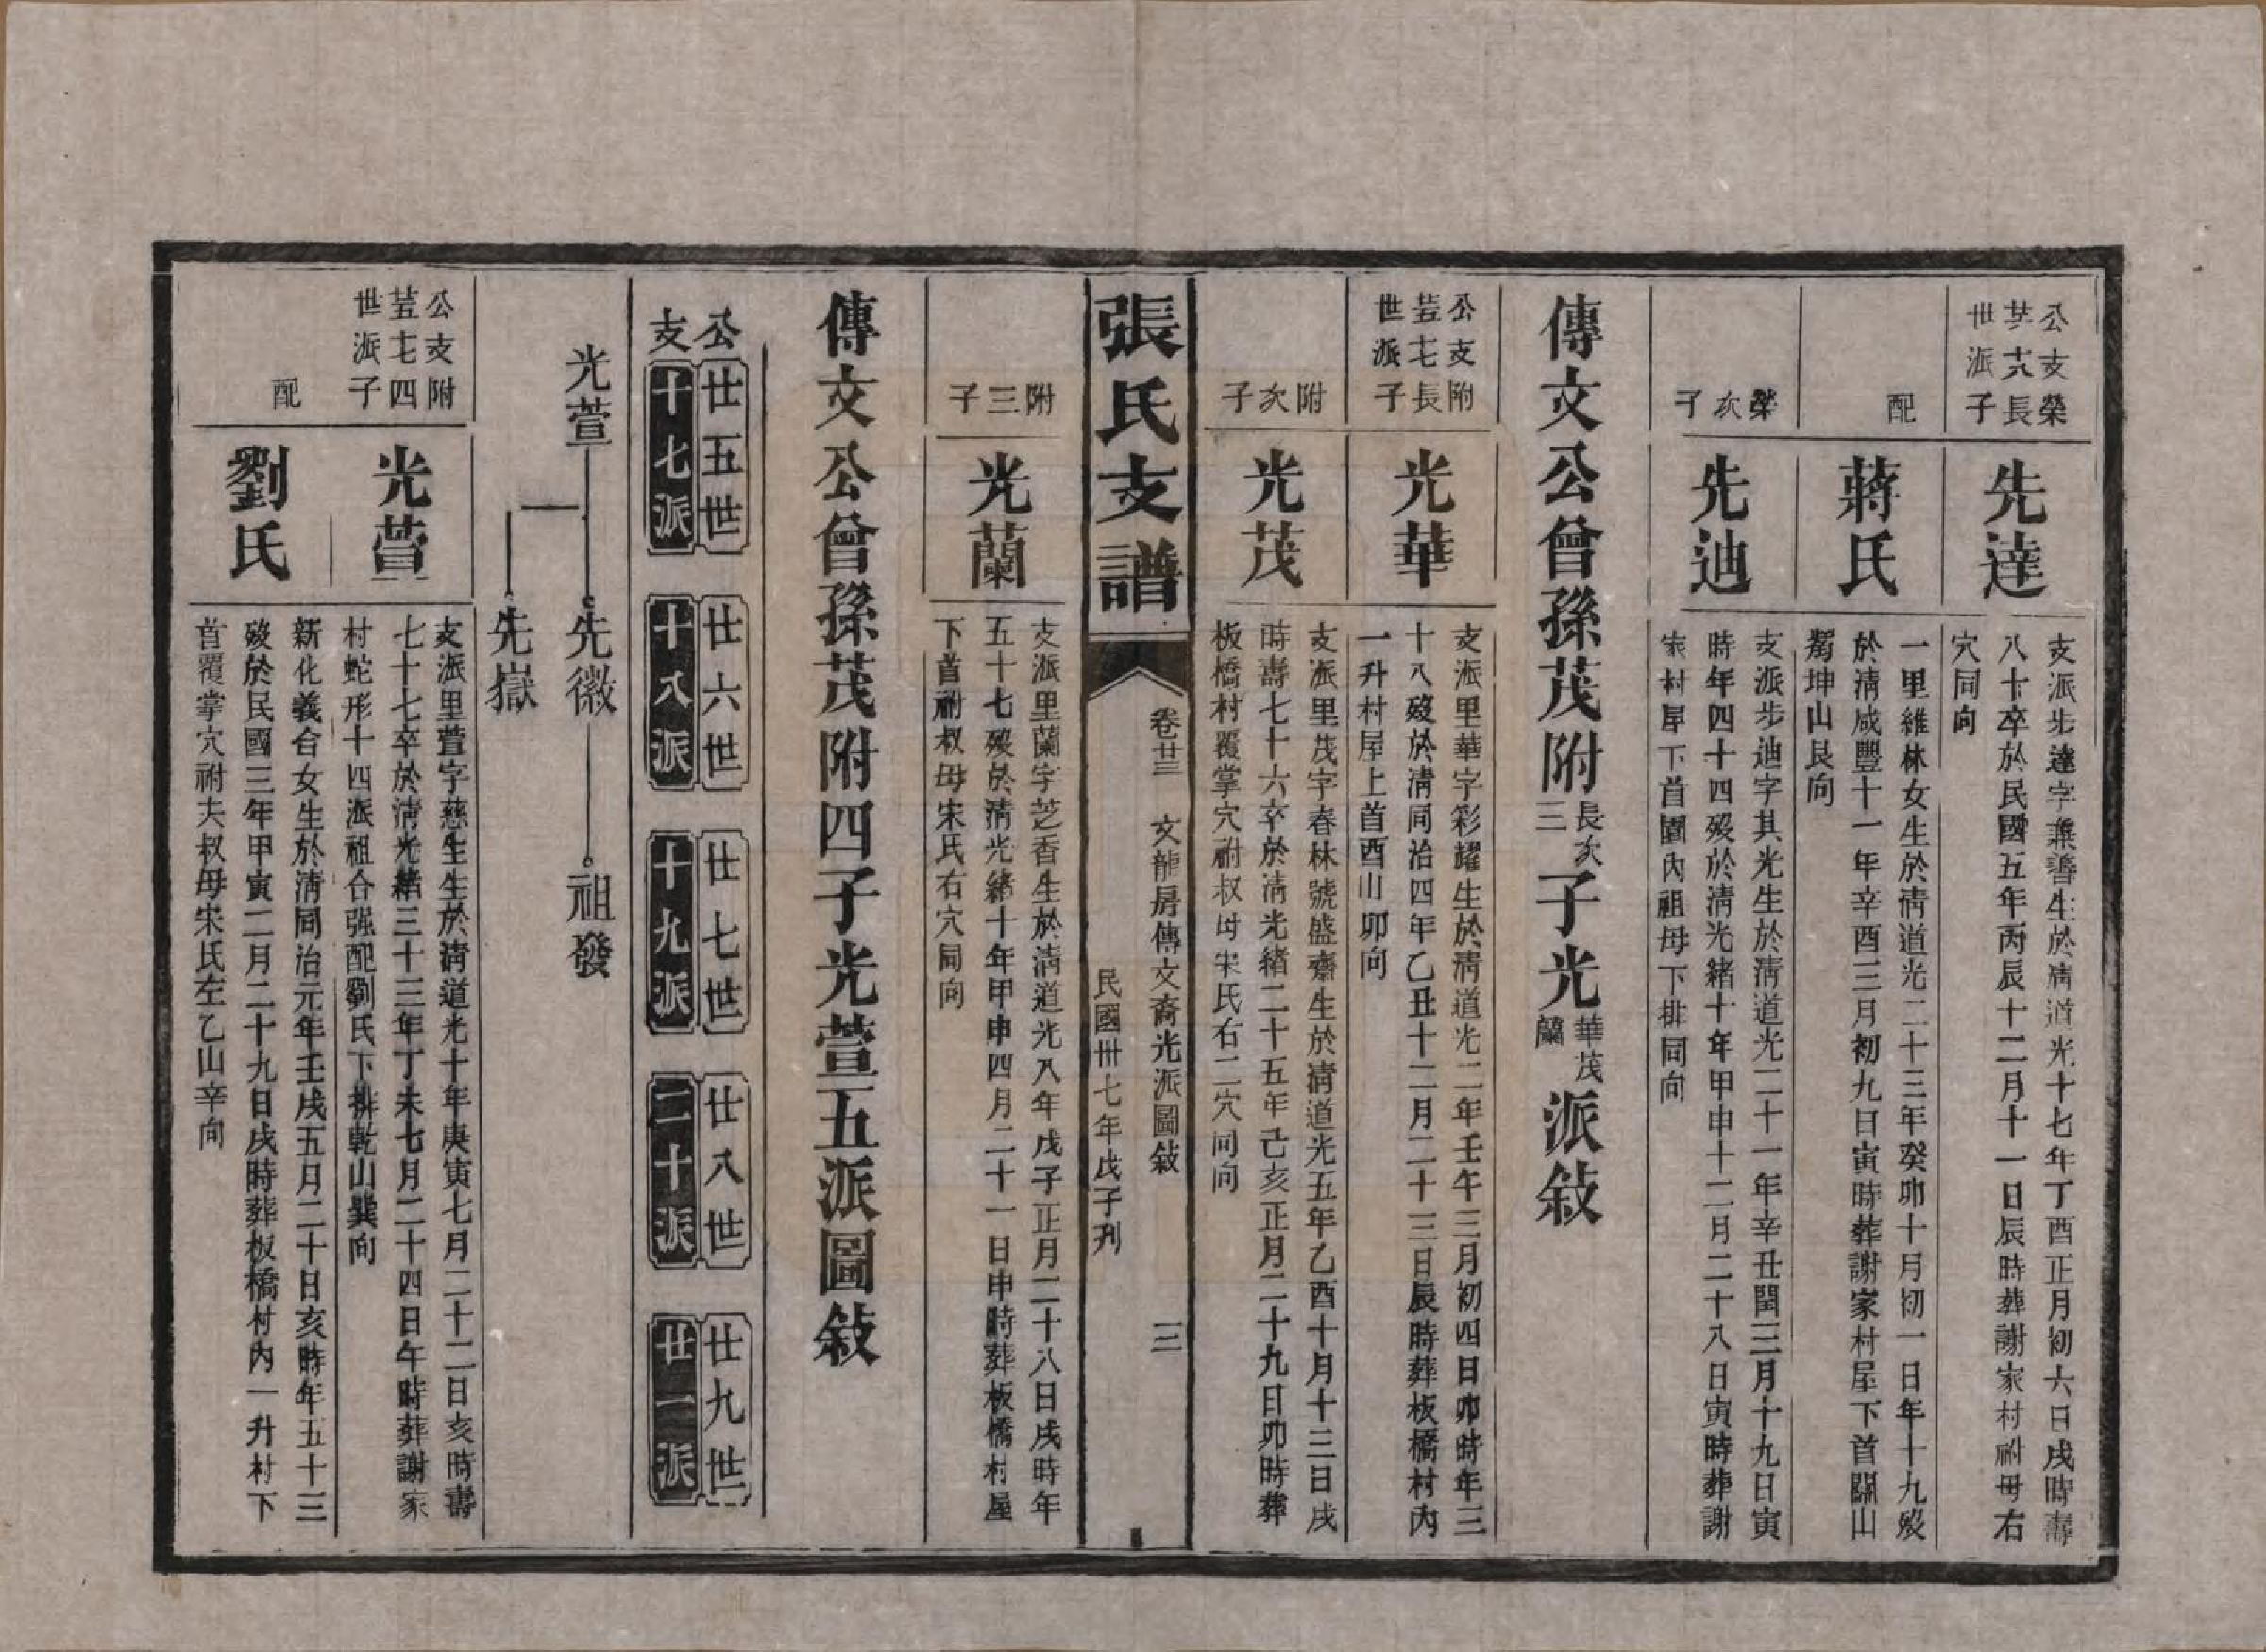 公支榮
芸六長
世派子
先達
支派步達字兼善生於淸道光十七年丁酉正月初六日戌時壽
八十卒於民國五年丙辰十二月十一日辰時葬謝家村祔母右
穴同向
配
蔣氏
一里維林女生於淸道光二十三年癸卯十月初一日年十九歿
於淸咸豐十一年辛酉三月初九日寅時葬謝家村屋下首關山
獨坤山艮向
榮次子
先迪
支派步迪字其光生於淸道光二十一年辛丑閏三月十九日寅
時年四十四歿於淸光緒十年甲申十二月二十八日寅時葬謝
家村屋下首園內祖母下排同向
傳文公曾孫茂附長次三子光華茂蘭派敍
公支附
芸七長
世派子
光華
支派里華字彩耀生於淸道光二年壬午三月初四日卯時年三
十八歿於淸同治四年乙丑十二月二十三日辰時葬板橋村內
一升村屋上首酉山卯向
附次子
光茂
支派里茂字春林號盛齋生於淸道光五年乙酉十月十三日戌
時壽七十六卒於淸光緒二十五年己亥正月二十九日卯時葬
板橋村覆掌穴祔叔母宋氏右二穴同向
張氏支譜
卷廿三 文龍房傳文裔光派圖敍 三
民國卅七年戊子刋
附三子
光蘭
支派里蘭字芝香生於淸道光八年戊子正月二十八日戌時年
五十七歿於淸光緒十年甲申四月二十一日申時葬板橋村屋
下首祔叔母宋氏右穴同向
傳文公曾孫茂附四子光萱五派圖敍
公 廿五世 廿六世 廿七世 廿八世 廿九世
支 十七派 十八派 十九派 二十派 廿一派
光萱 先徽 祖發
先嶽
公支附
芸七四
世派子
光萱
支派里萱字慈生生於淸道光十年庚寅七月二十二日亥時壽
七十七卒於淸光緒三十三年丁未七月二十四日午時葬謝家
村蛇形十四派祖合强配劉氏下排乾山巽向
配
劉氏
新化義合女生於淸同治元年壬戌五月二十日亥時年五十三
歿於民國三年甲寅二月二十九日戌時葬板橋村內一升村下
首覆掌穴祔夫叔母宋氏左乙山辛向